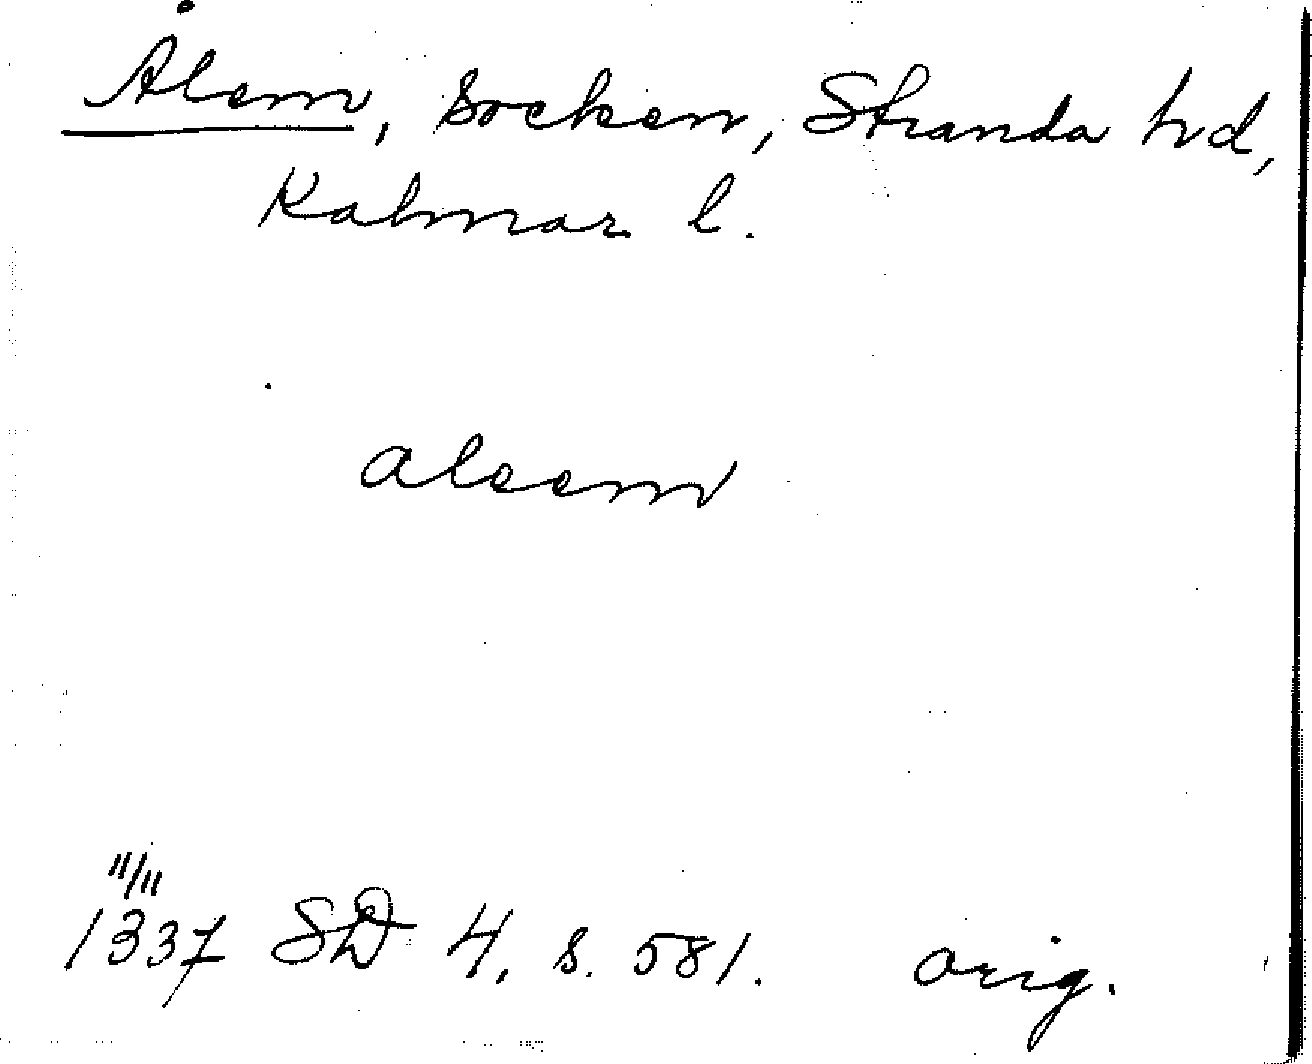 Ålem, socken, Stranda hd,
Kalmar l.
aleem
11/11
1337 SD 4, s. 581. orig.